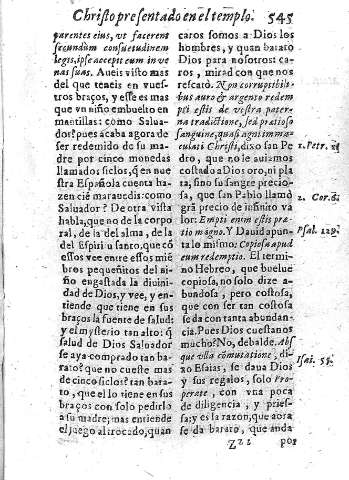 Christo presentado en el templo. 545
parentes eius, vt facerent
secundum consuetudinem
legis, ipse accepit eum in vl
nas suas. Aueis visto mas
del que teneis en vues-
tros braços, y esse es mas
que vn niño embuelto en
mantillas: como Salua-
dor? pues acaba agora de
ser redemido de su ma
dre por cinco monedas
llamados siclos, q̃ en nue
stra Española cuenta ha-
zen cié marauedis: como
Saluador? De otra vista
habla, que no de la corpo
ral, de la del alma, de la
del Espiritu santo, que có
essos vee entre essos mié
bros pequeñitos del ni-
ño engastada la diuini-
dad de Dios, y vee, y en-
tiende que tiene en sus
braços la fuente de salud:
y el mysterio tan alto: q̃
salud de Dios Saluador
se aya comprado tan ba-
rato? que no cueste mas
de cinco siclos? tan bara-
to, que ello tiene en sus
braços con solo pedirlo
a su madre; mas entiende
el juego al trocado, quan
caros somos a Dios los
hombres, y quan barato
Dios para nosotros: ca-
ros, mirad con que nos
rescató. Non corruptibili-
bus auro & argento redem
pti estis de vestra pater-
na traditione, sed pretioso
sanguine, quasi agni imma-
culati Christi, dixo san Pe
dro, que no le auiamos
costado a Dios oro, ni pla
ta, sino su sangre precio-
sa, que san Pablo llamó
grã precio de infinito va
lor: Empti enim estis pre-
tio magno. Y Dauid apun-
ta lo mismo: Copiosa apud
eum redemptio. El termi-
no Hebreo, que buelue
copiosa, no solo dize a-
bundosa, pero costosa,
que con ser tan costosa
se da con tanta abundan-
cia. Pues Dios cuestanos
mucho? No, debalde. Abs
que vlla cõmutatione, di-
xo Esaias, se daua Dios
y sus regalos, solo Pro-
perate, con vna poca
de diligencia, y pries-
sa; y es la razon, que aora
se da barato, que anda
1. Petr.
2. Cor.
Psal. 129.
Isai. 55.
Zz 2 por